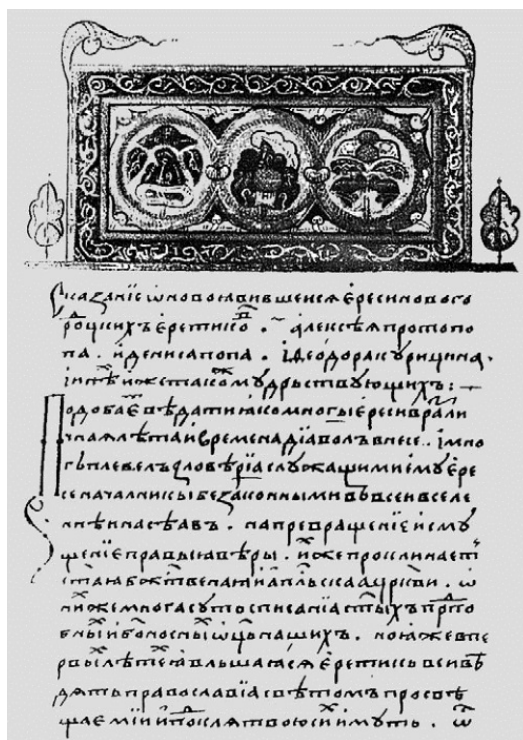 Сказанїе ѡ новоꙗвившеисѧ ереси нового
родцкихъ еретико. алексѣѧ протопо
па. и дениса попа. и феодора курицина.
и инѣ иже тако мудрьствующихъ:
Подобае вѣдати ꙗко многы ереси в разли
чнаѧ лѣта и времена дїаволъ внесе. и мно
гы плевелъ зловѣрїа служащими ему ере
сеначалникы безаконными во всеи вселе
ннѣи насѣавъ. на превращенїе и сму
щенїе правыѧ вѣры. иже проклинает
стаꙗ бжтвенаꙗ и апльскаа црккви. ѡ
ни же многа суть списанїа стыхъ прпо
бны и бгоносны ѡць нашихъ. но ꙗже в пе
рвы лѣте ꙗвльшаꙗсѧ еретикы вси вѣ
дѧть православїа свѣтомъ просвѣ
щаемїи и проклѧтвою си имуть. ѿ